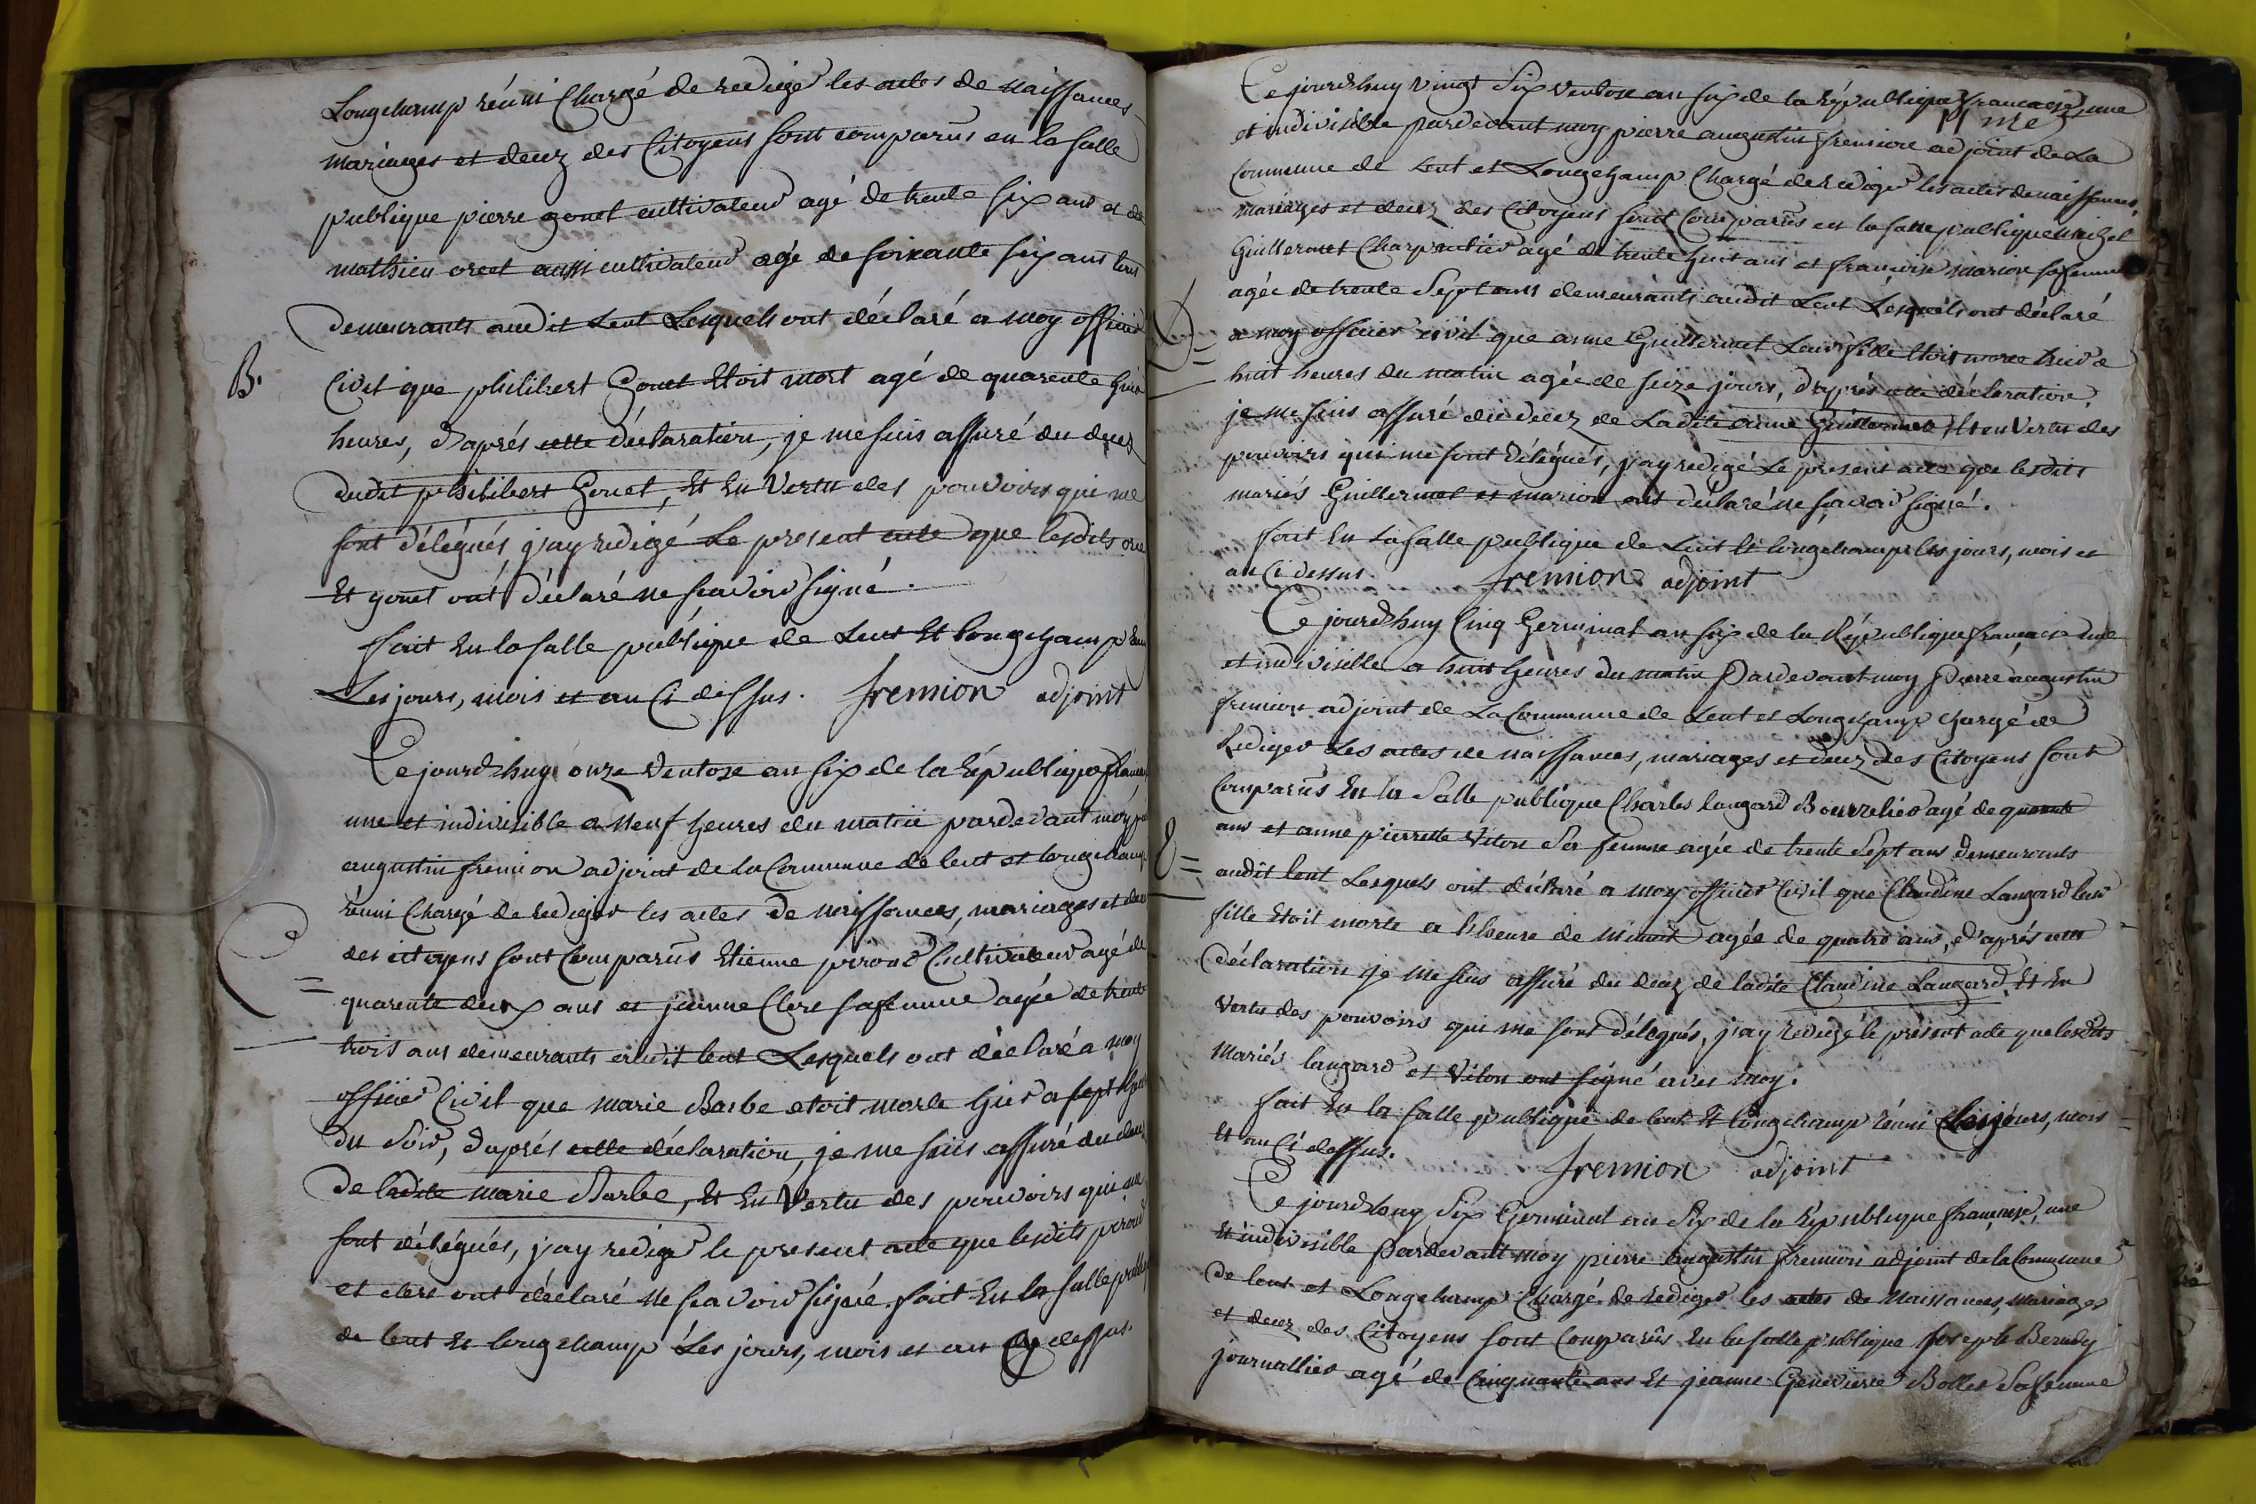 Longchamp réuni Chargé de rediger les actes de naissances
mariages et decez des Citoyens sont comparus en la salle
publique pierre gonet cultivateur agé de trente six ans et de
mathieu aussi cultivateur agé de soixante six ans tous
demeurants audit Lent Lesquels ont déclaré a moy officier
B.
Civil que philibert Gonet Etoit mort agé de quarente huit
heures, d'aprés cette déclaration, je me suis assuré du decez
dudit philibert Gonet, Et En Vertu des pouvoirs qui me
sont délégués, j'ay redigé Le present acte que lesdits
Et gonet ont déclaré ne sçavoir signé.
fait En la salle publique de Lent Et longchamp
Les jours, mois et an Ci dessus. fremion adjoint
Ce jourdhuy onze Ventose an six de la République
une et indivisible a Neuf heures du matin pardevant moy
augustin fremion adjoint de la Commune de lent et longchamp
réuni Chargé de rediger les actes de naissances, mariages et
des citoyens sont Comparus Etienne piroud Cultivateur agé de
quarente deux ans et jeanne Clerc sa femme agée de trente
trois ans demeurants audit lent Lesquels ont déclaré a moy
officier Civil que marie Barbe etoit morte hier a sept
du soir, daprés cette déclaration, je me suis assuré du
de ladite marie Barbe, Et En Vertu des pouvoirs qui me
sont délégués, j'ay rediger le present acte que lesdits piroud
et clerc ont déclaré ne sçavoir signé. fait En la salle
de lent Et longchamp Les jours, mois et an cy dessus.
Ce jourdhuy vingt Six ventose an six de la République francaise, une
et indivisible pardevant moy pierre augustin fremion adjoint de La
Commune de Lent et Longchamp Chargé de rediger les actes de naissances,
mariages et decez des Citoyens sont Comparus en la salle publique michel
Guillermet Charpentier agé de trente huit ans et francoise marion sa femme
agée de trente Sept ans demeurants audit Lent Lesquels ont déclaré
a moy officier civil que anne Guillermet Leur fille Etoit morte hier a
huit heures du matin agée de seize jours, d'aprés cette déclaration,
je me suis assuré du decez de Ladite anne Guillermet Et en Vertu des
pouvoirs qui me sont délégués, j'ay redigé Le present acte que lesdits
mariés Guillermet et marion ont déclaré ne sçavoir signé.
fait En la salle publique de Lent Et longchamp les jours, mois et
an Ci dessus. fremion adjoint
Ce jourdhuy Cinq Germinal an six de la République francaise une
et indivisible a huit heures du matin Pardevant moy Pierre augustin
fremion adjoint de La Commune de Lent et Longchamp chargé de
Rediger Les actes de naissances, mariages et decez des Citoyens sont
Comparus En la Salle publique Charles langard Bourrelier agé de quarente
ans et anne pierrette Viton Sa femme agée de trente Sept ans demeurants
audit lent Lesquels ont déclaré a moy officier Civil que Claudine Langard leur
fille Etoit morte a l'heure de minuit agée de quatre ans, d'aprés cette
déclaration je me suis assuré du decez de ladite Claudine Langard, Et En
Vertu des pouvoirs qui me sont délegués, j'ay redigé le présent acte que lesdits
Mariés langard et Viton ont signé avec moy.
fait En la salle publique de lent Et longchamp réuni Les jours, mois
Et an Ci dessus.
fremion adjoint
Ce jourdhuy Six Germinal an Six de la République francaise, une
Et indivisible Pardevant moy pierre augustin fremion adjoint de la Commune
de lent et Longchamp Chargé de rediger les actes de Naissances, mariages
et decez des Citoyens sont Comparus En la salle publique joseph
journallier agé de Cinquante ans Et jeanne Genevieve Bollet Sa femme